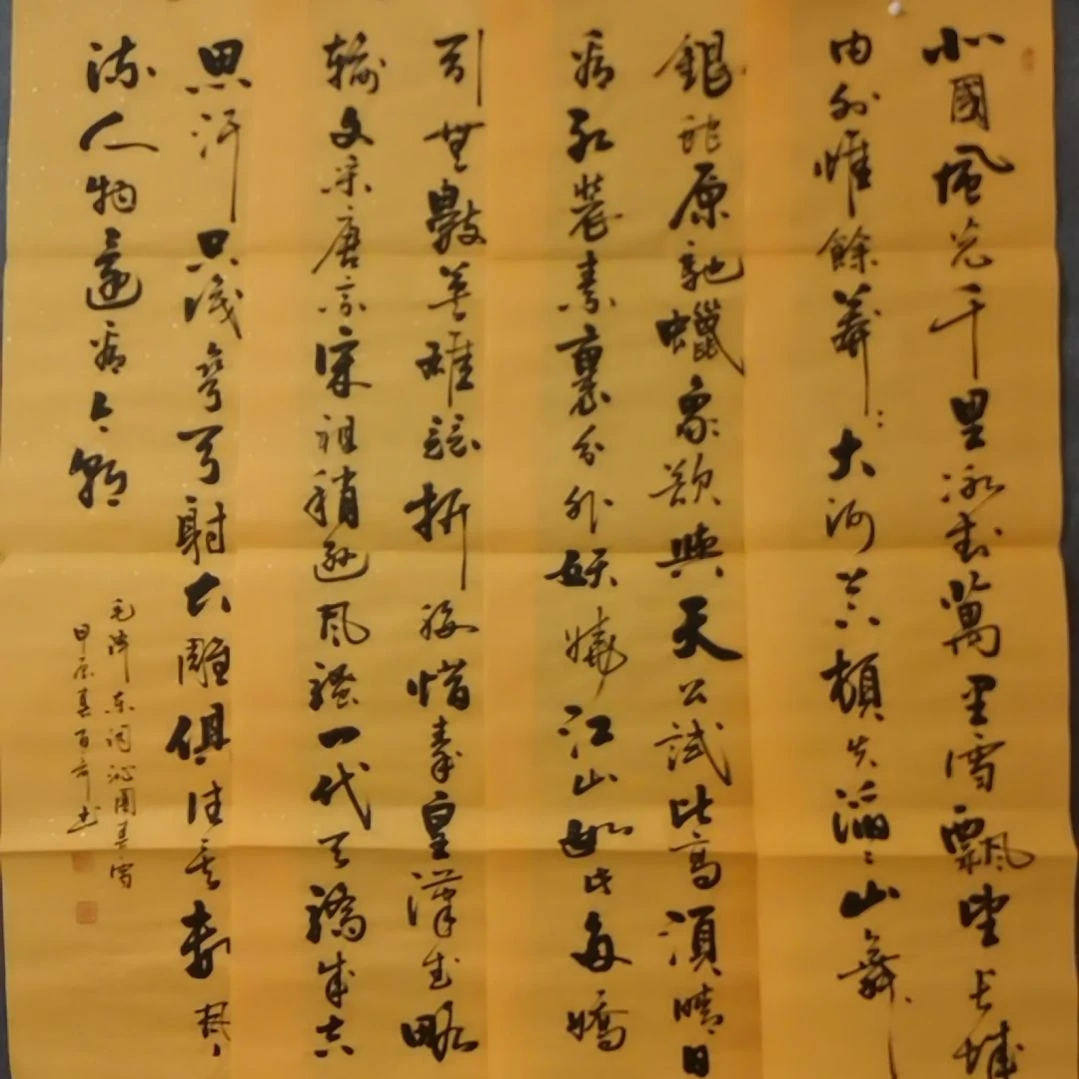 北國風光千里冰封萬里雪飄望長城
内外惟餘莽〻大河上下頓失滔〻山舞
銀蛇原馳蠟象欲與天公試比高須晴日
看紅裝素裹分外妖嬈江山如此多嬌
引無數英雄競折腰惜秦皇漢武略
輸文采唐宗宋祖稍遜風騷一代天驕成吉
思汗只識彎弓射大雕俱往矣數風
流人物還看今朝
毛澤东词沁園春雪
甲辰夏百奇书